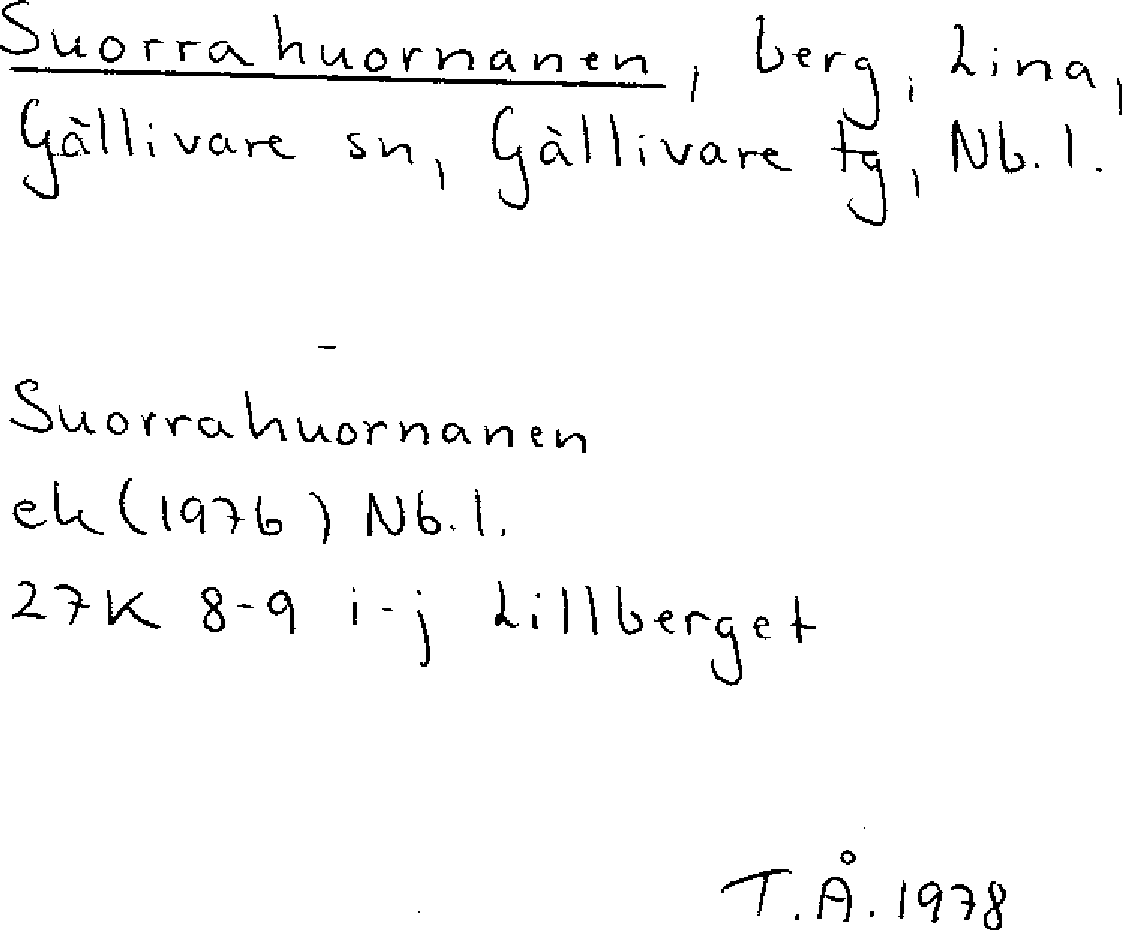 Suorrahuornanen, berg, Lina,
Gällivare sn, Gällivare tg, Nb. l.
-
Suorrahuornanen
ek (1976) Nb. l.
27K 8-9 i-j Lillberget
T.Å. 1978